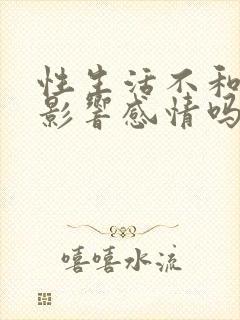 性生活不和
影響感情吗
嘻嘻水流